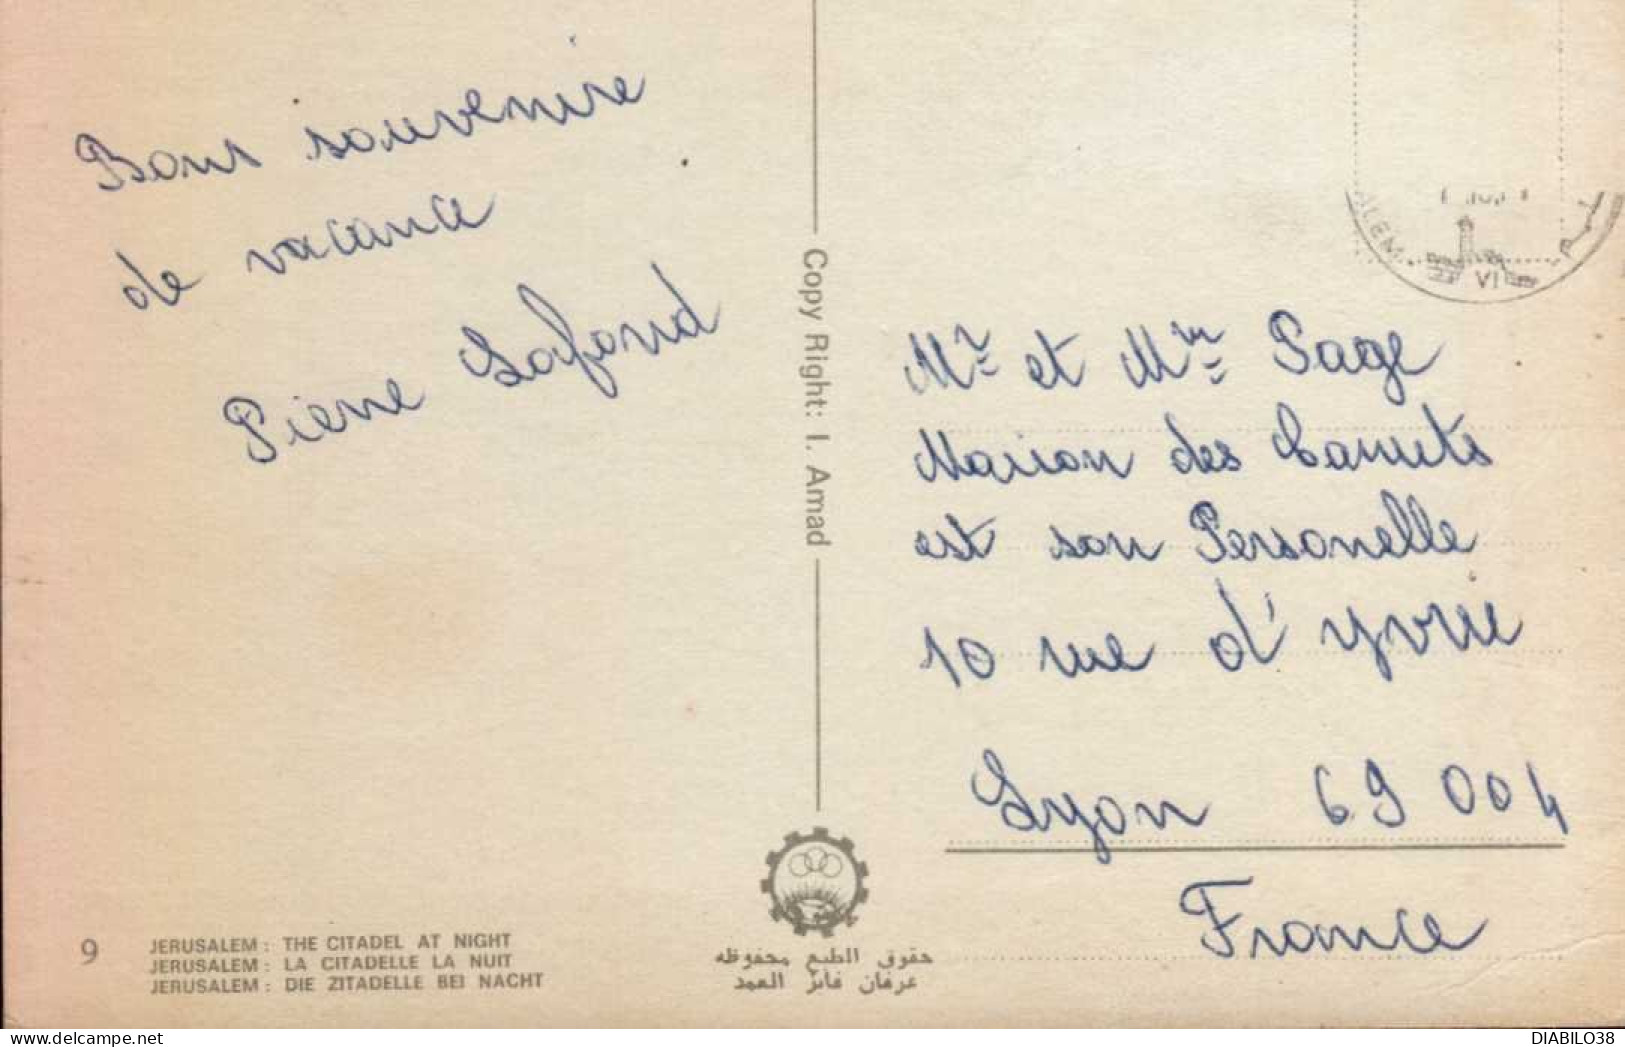 Bons souvenire
de vacance
Pierre Lafond
Copy Right: I. Amad
ALEM
VI
Mr et Mm Page
Maison des Canuts
est son Personelle
10 rue d'yvrie
Lyon 69 004
France
9
JERUSALEM: THE CITADEL AT NIGHT
JERUSALEM: LA CITADELLE LA NUIT
JERUSALEM: DIE ZITADELLE BEI NACHT
حقوق الطبع محفوظه
عرفان فائز العمد
delcampe.net
DIABILO38